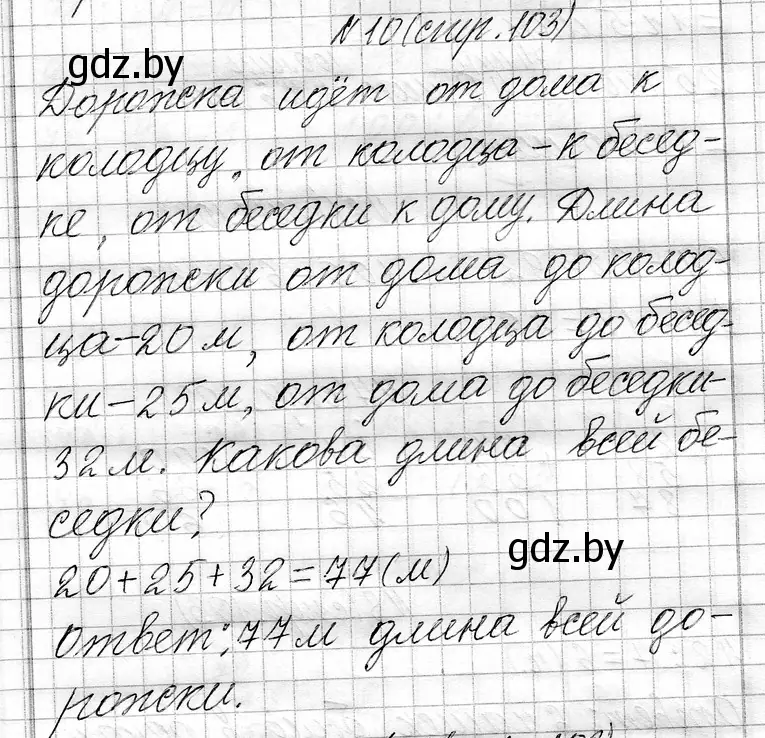 №10(стр.103)
gdz.by
Дорожка идёт от дома к
колодцу, от колодца - к бесед-
ке, от беседки к дому. Длина
дорожки от дома до колод-
ца-20м, от колодца до бесед-
ки-25м, от дома до беседки-
32м. Какова длина всей бе-
седки?
gdz.by
20+25+32=77(м)
Ответ: 77м длина всей до-
рожки.